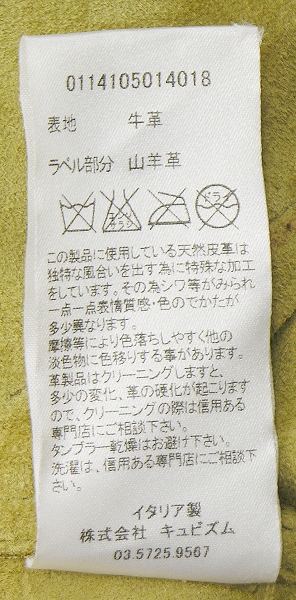 0114105014018
表地 牛革
ラベル部分 山羊革
エンソサラシ
ドライ
この製品に使用している天然皮革は
独特な風合いを出す為に特殊な加工
をしています。その為シワ等がみられ
一点一点表情質感・色のでかたが
多少異なります。
摩擦等により色落ちしやすく他の
淡色物に色移りする事があります。
革製品はクリーニングしますと、
多少の変化、革の硬化が起こります
ので、クリーニングの際は信用ある
専門店にご相談下さい。
タンブラー乾燥はお避け下さい。
洗濯は、信用ある専門店にご相談下
さい。
イタリア製
株式会社 キュビズム
03.5725.9567